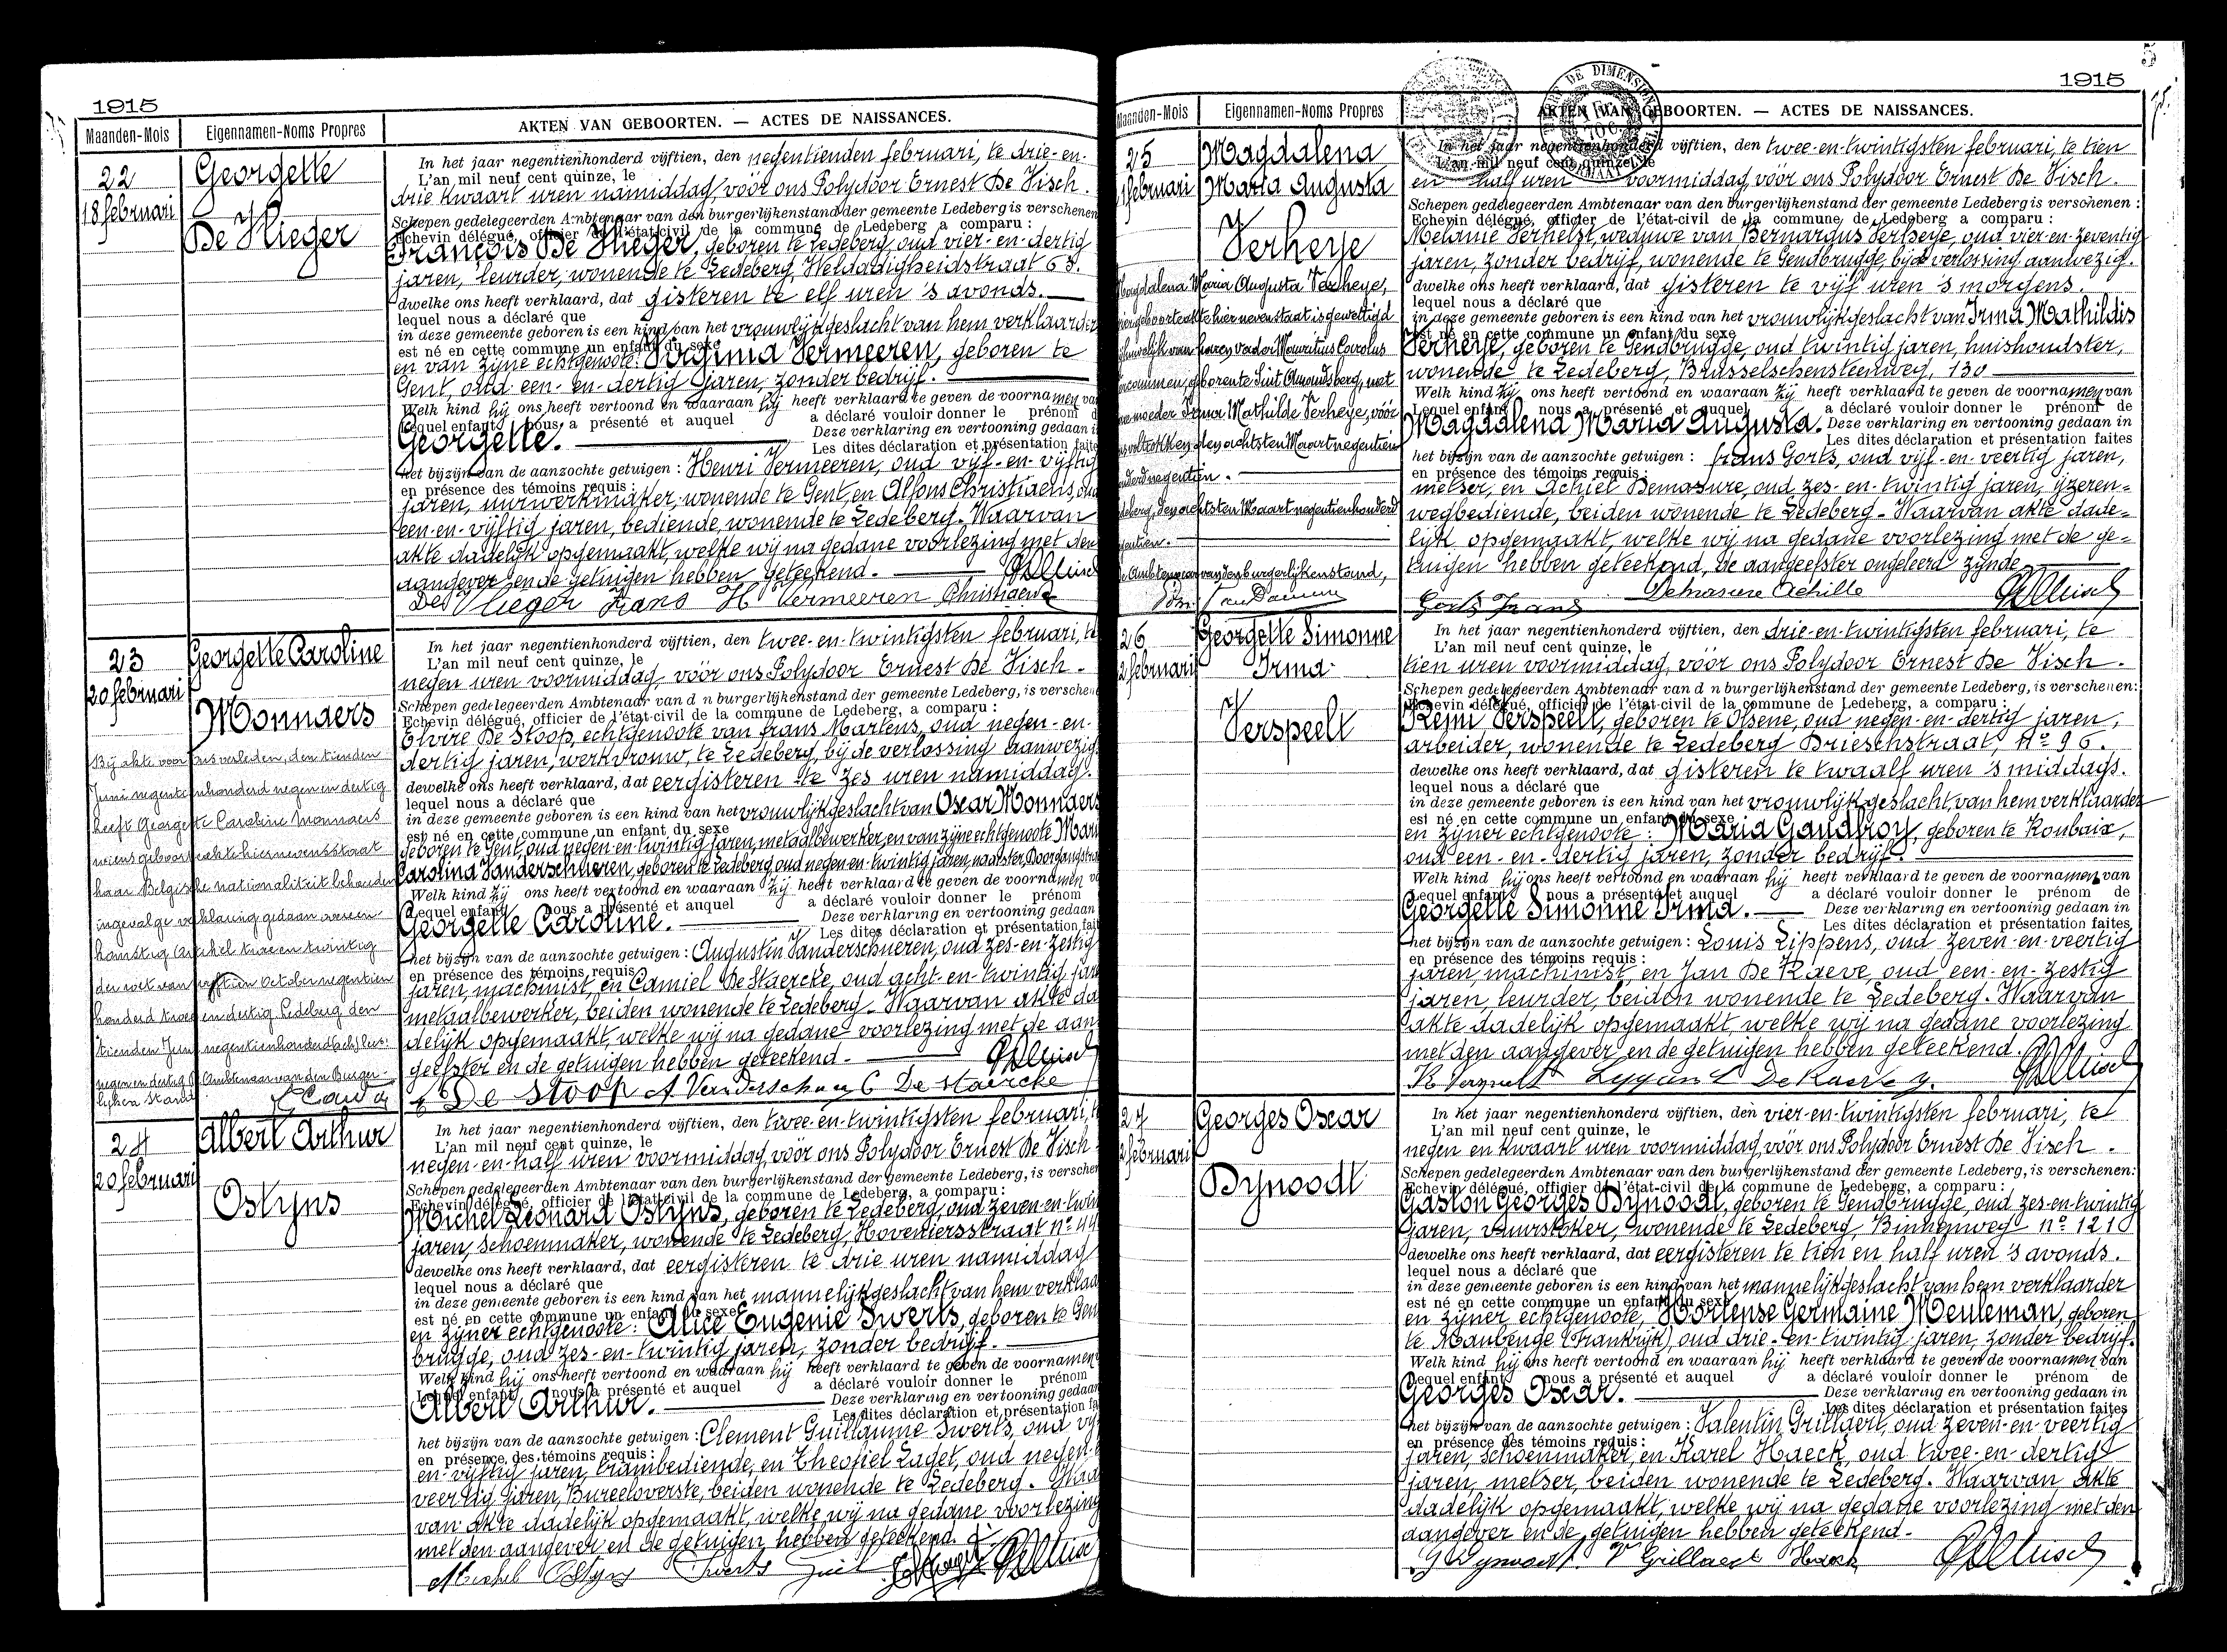 1915
Maanden-Mois
Eigennamen-Noms Propres
AKTEN VAN GEBOORTEN. — ACTES DE NAISSANCES.
22
18 februari
Georgette
De Vlieger
In het jaar negentienhonderd vijftien, den negentienden februari, te drie-en-
L'an mil neuf cent quinze, le
drie kwaart uren namiddag, vóór ons Polydoor Ernest De Visch.
Schepen gedelegeerden Ambtenaar van den burgerlijkenstand der gemeente Ledeberg is verschenen
Echevin délégué, officier de l'état-civil de la commune de Ledeberg a comparu :
François De Vlieger, geboren te Ledeberg, oud vier-en-dertig
jaren, leurder, wonende te Ledeberg, Weldadigheidstraat 63.
dwelke ons heeft verklaard, dat gisteren te elf uren 's avonds.
lequel nous a déclaré que
in deze gemeente geboren is een kind van het vrouwlijkgeslacht van hem verklaarder
est né en cette commune un enfant du sexe
en van zijne echtgenoote: Virginia Vermeeren, geboren te
Gent, oud een-en-dertig jaren, zonder bedrijf.
Welk kind hij ons heeft vertoond en waaraan hij heeft verklaard te geven de voornamen va
Lequel enfant nous a présenté et auquel a déclaré vouloir donner le prénom d
Georgette. Deze verklaring en vertooning gedaan i
Les dites déclaration et présentation faite
het bijzijn van de aanzochte getuigen : Henri Vermeeren, oud vijf-en-vijftig
en présence des témoins requis :
jaren, uurwerkmaker, wonende te Gent, en Alfons Christiaens, oud
een-en-vijftig jaren, bediende, wonende te Ledeberg. Waarvan
akte dadelijk opgemaakt, welke wij na gedane voorlezing met den
aangever en de getuigen hebben geteekend.
De Vlieger Frans H Vermeeren Christiaens
23
20 februari
Georgette Caroline
Monnaers
Bij akte voor ons verleden, den tienden
Juni negentienhonderd negen en dertig
heeft Georgette Caroline Monnaers
wiens geboorteakte hiernevensstaat
haar Belgische nationaliteit behouden
ingevolge verklaring gedaan overeen-
komstig Artikel twee en twintig
der wet van vijftien October negentien
honderd twee en dertig Ledeberg den
tienden Juni negentienhonderd
negen en dertig Ambtenaar van den Burger-
lijken Stand
In het jaar negentienhonderd vijftien, den twee-en-twintigsten februari, te
L'an mil neuf cent quinze, le
negen uren voormiddag, vóór ons Polydoor Ernest De Visch.
Schepen gedelegeerden Ambtenaar van d n burgerlijkenstand der gemeente Ledeberg, is versche
Echevin délégué, officier de l'état-civil de la commune de Ledeberg, a comparu :
Elvire De Stoop, echtgenoote van frans Martens, oud negen-en-
dertig jaren, werkvrouw, te Ledeberg, bij de verlossing aanwezig.
dewelke ons heeft verklaard, dat eergisteren te zes uren namiddag.
lequel nous a déclaré que
in deze gemeente geboren is een kind van het vrouwlijkgeslacht van Oscar Monnaers
est né en cette commune un enfant du sexe
geboren te Gent, oud negen-en-twintig jaren, metaalbewerker, en van zijne echtgenoote Maria
Carolina Vanderschueren, geboren te Ledeberg, oud negen-en-twintig jaren, naaister,
Welk kind zij ons heeft vertoond en waaraan zij heeft verklaard te geven de voornamen va
Lequel enfant nous a présenté et auquel a déclaré vouloir donner le prénom
Georgette Caroline. Deze verklaring en vertooning gedaan
Les dites déclaration et présentation fait
het bijzijn van de aanzochte getuigen : Augustin Vanderschueren, oud zes-en-zestig
en présence des témoins requis
jaren, machinist, en Camiel De Staercke, oud acht-en-twintig jare
metaalbewerker, beiden wonende te Ledeberg. Waarvan akte da
delijk opgemaakt, welke wij na gedane voorlezing met de aan
geefster en de getuigen hebben geteekend.
E De Stoop A Vanderschueren C De Staercke
24
20 februari
Albert Arthur
Ostijns
In het jaar negentienhonderd vijftien, den twee-en-twintigsten februari, te
L'an mil neuf cent quinze, le
negen-en-half uren voormiddag, vóór ons Polydoor Ernest De Visch
Schepen gedelegeerden Ambtenaar van den burgerlijkenstand der gemeente Ledeberg, is versche
Echevin délégué, officier de l'état-civil de la commune de Ledeberg, a comparu :
Michel Léonard Ostijns, geboren te Ledeberg, oud zeven-en-twin
jaren, schoenmaker, wonende te Ledeberg, Hoveniersstraat nº 44
dewelke ons heeft verklaard, dat eergisteren te drie uren namiddag
lequel nous a déclaré que
in deze gemeente geboren is een kind van het mannelijkgeslacht van hem verklaa
est né en cette commune un enfant du sexe
en zijner echtgenoote: Alice Eugenie Swerts, geboren te Gen
brugge, oud zes-en-twintig jaren, zonder bedrijf.
Welk kind hij ons heeft vertoond en waaraan hij heeft verklaard te geven de voornamen
Lequel enfant nous a présenté et auquel a déclaré vouloir donner le prénom
Albert Arthur. Deze verklaring en vertooning gedaan
Les dites déclaration et présentation fa
het bijzijn van de aanzochte getuigen : Clement Guillaume Swerts, oud vijf
en présence des témoins requis :
en-vijftig jaren, trambediende, en Theofiel Laget, oud negen-e
veertig jaren, Bureeloverste, beiden wonende te Ledeberg. Waa
van akte dadelijk opgemaakt, welke wij na gedane voorlezing
met den aangever en de getuigen hebben geteekend.
Michel Ostyns Swerts
5
1915
Maanden-Mois
Eigennamen-Noms Propres
AKTEN VAN GEBOORTEN. — ACTES DE NAISSANCES.
25
februari
Magdalena
Maria Augusta
Verheye
Magdalena Maria Augusta Verheye,
wier geboorteakte hiernevenstaat is gewettigd
bij huwelijk van haren vader Mauritius Carolus
geboren te Sint Amandsberg, met
hare moeder Irma Mathilde Verheye, vóór
ons voltrokken den achtsten Maart negentien
honderd negentien.
Ledeberg, den achtsten Maart negentienhonderd
negentien.
De Ambtenaar van den burgerlijkenstand,
In het jaar negentienhonderd vijftien, den twee-en-twintigsten februari, te tien
L'an mil neuf cent quinze, le
en half uren voormiddag, vóór ons Polydoor Ernest De Visch.
Schepen gedelegeerden Ambtenaar van den burgerlijkenstand der gemeente Ledeberg is verschenen :
Echevin délégué, officier de l'état-civil de la commune de Ledeberg a comparu :
Melanie Verhelst, weduwe van Bernardus Verheye, oud vier-en-zeventig
jaren, zonder bedrijf, wonende te Gendbrugge, bij de verlossing aanwezig.
dwelke ons heeft verklaard, dat gisteren te vijf uren 's morgens.
lequel nous a déclaré que
in deze gemeente geboren is een kind van het vrouwlijkgeslacht van Irma Mathildis
est né en cette commune un enfant du sexe
Verheye, geboren te Gendbrugge, oud twintig jaren, huishoudster,
wonende te Ledeberg, Brusselschensteenweg, 130
Welk kind zij ons heeft vertoond en waaraan zij heeft verklaard te geven de voornamen van
Lequel enfant nous a présenté et auquel a déclaré vouloir donner le prénom de
Magdalena Maria Augusta. Deze verklaring en vertooning gedaan in
Les dites déclaration et présentation faites
het bijzijn van de aanzochte getuigen : frans Gorts, oud vijf-en-veertig jaren,
en présence des témoins requis :
metser, en Achiel Demasure, oud zes-en-twintig jaren, ijzeren-
wegbediende, beiden wonende te Ledeberg. Waarvan akte dade-
lijk opgemaakt, welke wij na gedane voorlezing met de ge-
tuigen hebben geteekend, de aangeefster ongeleerd zijnde
Gorts Frans Demasure Achille
26
februari
Georgette Simonne
Irma
Verspeelt
In het jaar negentienhonderd vijftien, den drie-en-twintigsten februari, te
L'an mil neuf cent quinze, le
tien uren voormiddag, vóór ons Polydoor Ernest De Visch.
Schepen gedelegeerden Ambtenaar van d n burgerlijkenstand der gemeente Ledeberg, is verschenen:
Echevin délégué, officier de l'état-civil de la commune de Ledeberg, a comparu :
Remi Verspeelt, geboren te Olsene, oud negen-en-dertig jaren,
arbeider, wonende te Ledeberg Drieschstraat, nº 96.
dewelke ons heeft verklaard, dat gisteren te twaalf uren 's middags.
lequel nous a déclaré que
in deze gemeente geboren is een kind van het vrouwlijkgeslacht van hem verklaarder
est né en cette commune un enfant du sexe
en zijner echtgenoote: Maria Gaudfroy, geboren te Roubaix,
oud een-en-dertig jaren, zonder bedrijf.
Welk kind hij ons heeft vertoond en waaraan hij heeft verklaard te geven de voornamen van
Lequel enfant nous a présenté et auquel a déclaré vouloir donner le prénom de
Georgette Simonne Irma. Deze verklaring en vertooning gedaan in
Les dites déclaration et présentation faites
het bijzijn van de aanzochte getuigen : Louis Lippens, oud zeven-en-veertig
en présence des témoins requis :
jaren, machinist, en Jan De Raeve, oud een-en-zestig
jaren, leurder, beiden wonende te Ledeberg. Waarvan
akte dadelijk opgemaakt, welke wij na gedane voorlezing
met den aangever en de getuigen hebben geteekend.
R Verspeelt
27
februari
Georges Oscar
Dynoodt
In het jaar negentienhonderd vijftien, den vier-en-twintigsten februari, te
L'an mil neuf cent quinze, le
negen en kwaart uren voormiddag, vóór ons Polydoor Ernest De Visch.
Schepen gedelegeerden Ambtenaar van den burgerlijkenstand der gemeente Ledeberg, is verschenen:
Echevin délégué, officier de l'état-civil de la commune de Ledeberg, a comparu :
Gaston Georges Dynoodt, geboren te Gendbrugge, oud zes-en-twintig
jaren, vuurstoker, wonende te Ledeberg, Binnenweg nº 121
dewelke ons heeft verklaard, dat eergisteren te tien en half uren 's avonds.
lequel nous a déclaré que
in deze gemeente geboren is een kind van het mannelijkgeslacht van hem verklaarder
est né en cette commune un enfant du sexe
en zijner echtgenoote, Hortense Germaine Meuleman, geboren
te Maubeuge (Frankrijk), oud drie-en-twintig jaren, zonder bedrijf.
Welk kind hij ons heeft vertoond en waaraan hij heeft verklaard te geven de voornamen van
Lequel enfant nous a présenté et auquel a déclaré vouloir donner le prénom de
Georges Oscar. Deze verklaring en vertooning gedaan in
Les dites déclaration et présentation faites
het bijzijn van de aanzochte getuigen : Valentin Grillaert, oud zeven-en-veertig
en présence des témoins requis :
jaren, schoenmaker, en Karel Haeck, oud twee-en-dertig
jaren, metser, beiden wonende te Ledeberg. Waarvan akte
dadelijk opgemaakt, welke wij na gedane voorlezing met den
aangever en de getuigen hebben geteekend.
G Dynoodt. V Grillaert Haeck